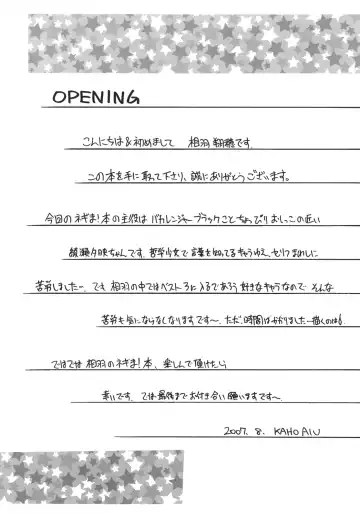 OPENING
こんにちは&初めまして 相羽翔穂です。
この本を手に取って下さり、誠にありがとうございます。
今回のネギま!本の主役はバカレンジャーブラックことちょっぴりおしっこの近い
綾瀬夕映ちゃんです。哲学少女で言葉を知ってるキャラゆえ、セリフまわしに
苦労しましたー。でも相羽の中ではベスト3に入るであろう好きなキャラなので そんな
苦労も気にならなくなりますです〜。ただ、時間はかかりました…描くのは
ではでは 相羽のネギま!本、楽しんで頂けたら
幸いです。では最後までお付き合い願いますです〜
2007. 8. KAHO AIU